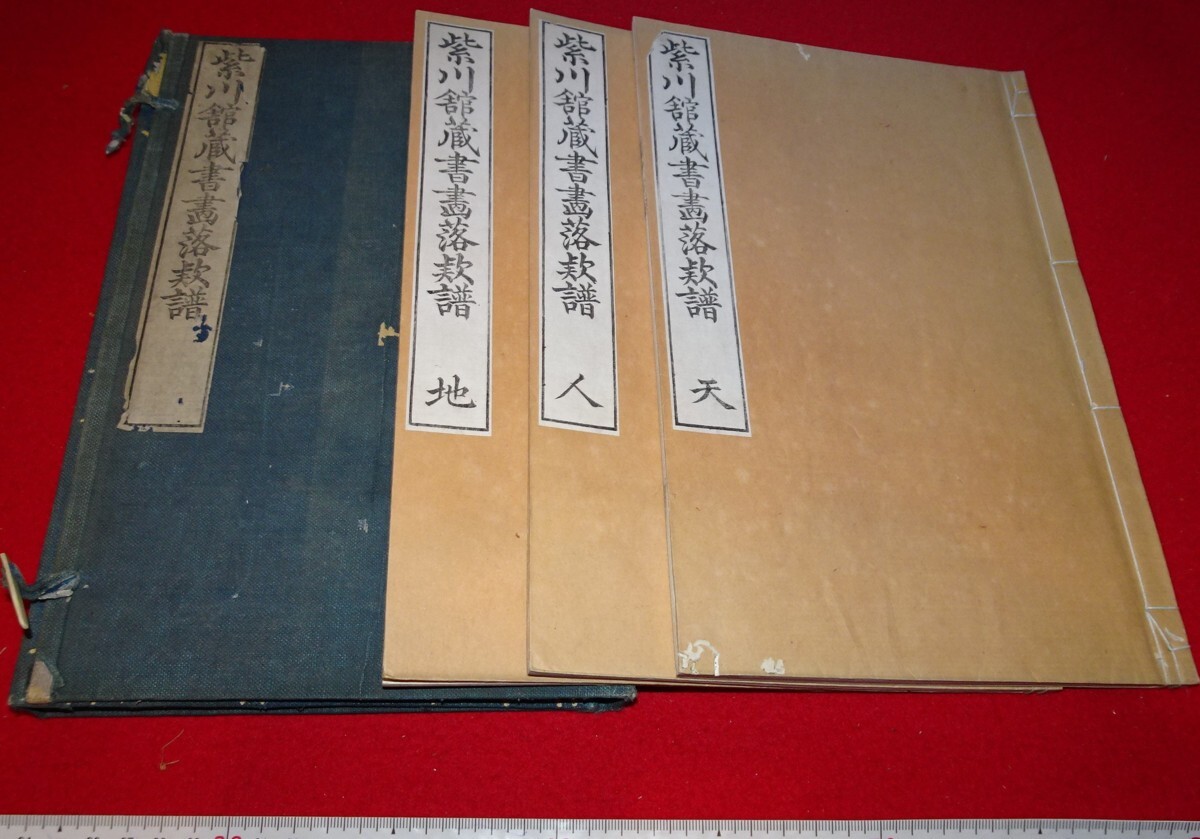 紫川舘蔵書畵落欵譜
紫川舘蔵書畵落欵譜 地
紫川舘蔵書畵落欵譜 人
紫川舘蔵書畵落欵譜 天